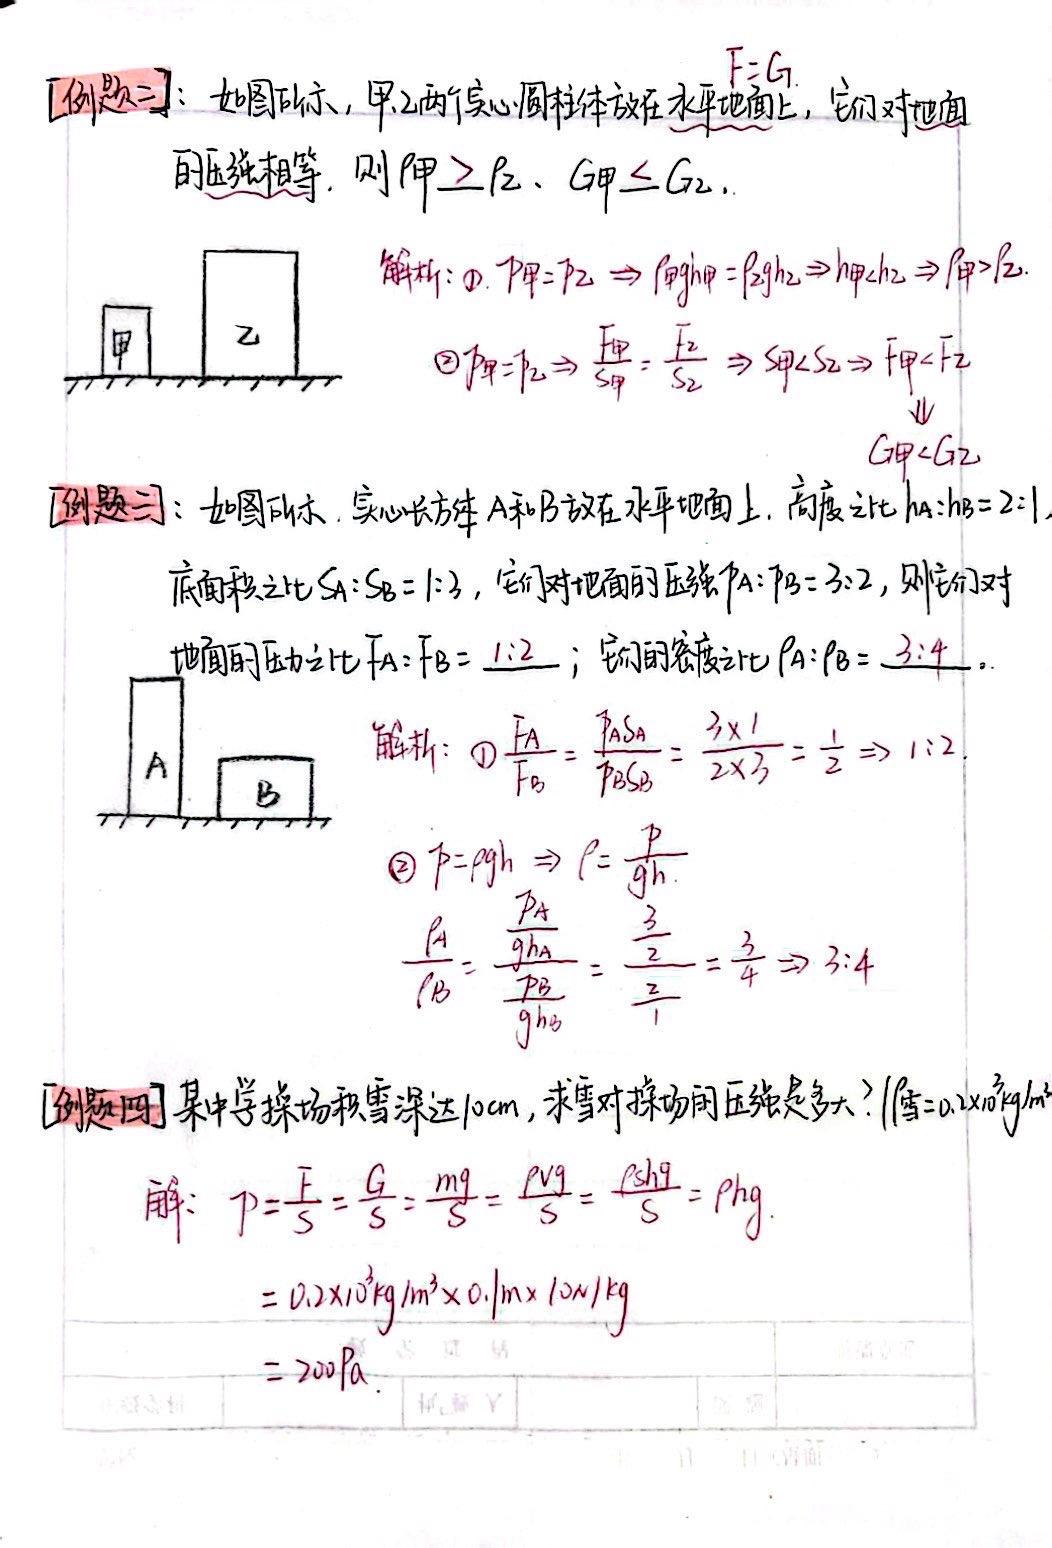 F=G.
[例题二]：如图所示，甲乙两个实心圆柱体放在水平地面上，它们对地面
的压强相等，则ρ甲 > ρ乙、G甲 < G乙.
解析：①. p甲=p乙 ⇒ ρ甲gh甲=ρ乙gh乙 ⇒ h甲<h乙 ⇒ ρ甲>ρ乙.
甲 乙
② p甲=p乙 ⇒ F甲/S甲 = F乙/S乙 ⇒ S甲<S乙 ⇒ F甲<F乙
⇓
G甲<G乙
[例题三]：如图所示，实心长方体A和B放在水平地面上，高度之比hA:hB=2:1，
底面积之比SA:SB=1:3，它们对地面的压强pA:pB=3:2，则它们对
地面的压力之比FA:FB= 1:2 ；它们的密度之比ρA:ρB= 3:4 。
解析：① FA/FB = pASA/pBSB = 3×1/2×3 = 1/2 ⇒ 1:2.
A B
② p=ρgh ⇒ ρ= p/gh.
ρA/ρB = (pA/ghA)/(pB/ghB) = (3/2)/(2/1) = 3/4 ⇒ 3:4
[例题四] 某中学操场积雪深达10cm，求雪对操场的压强是多大？(ρ雪=0.2×10³kg/m³
解：p= F/S = G/S = mg/S = ρVg/S = ρshg/S = ρhg.
= 0.2×10³kg/m³×0.1m×10N/kg
= 200Pa.